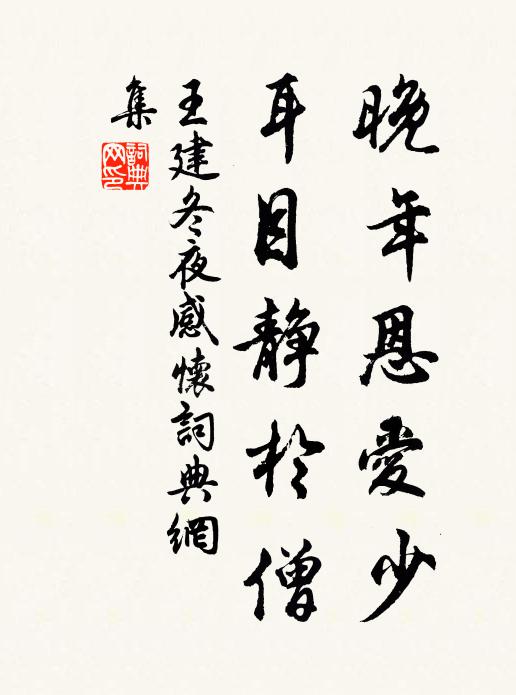 晚年恩愛少
耳目静於僧
王建冬夜感懷詞典網
集
詞典網印